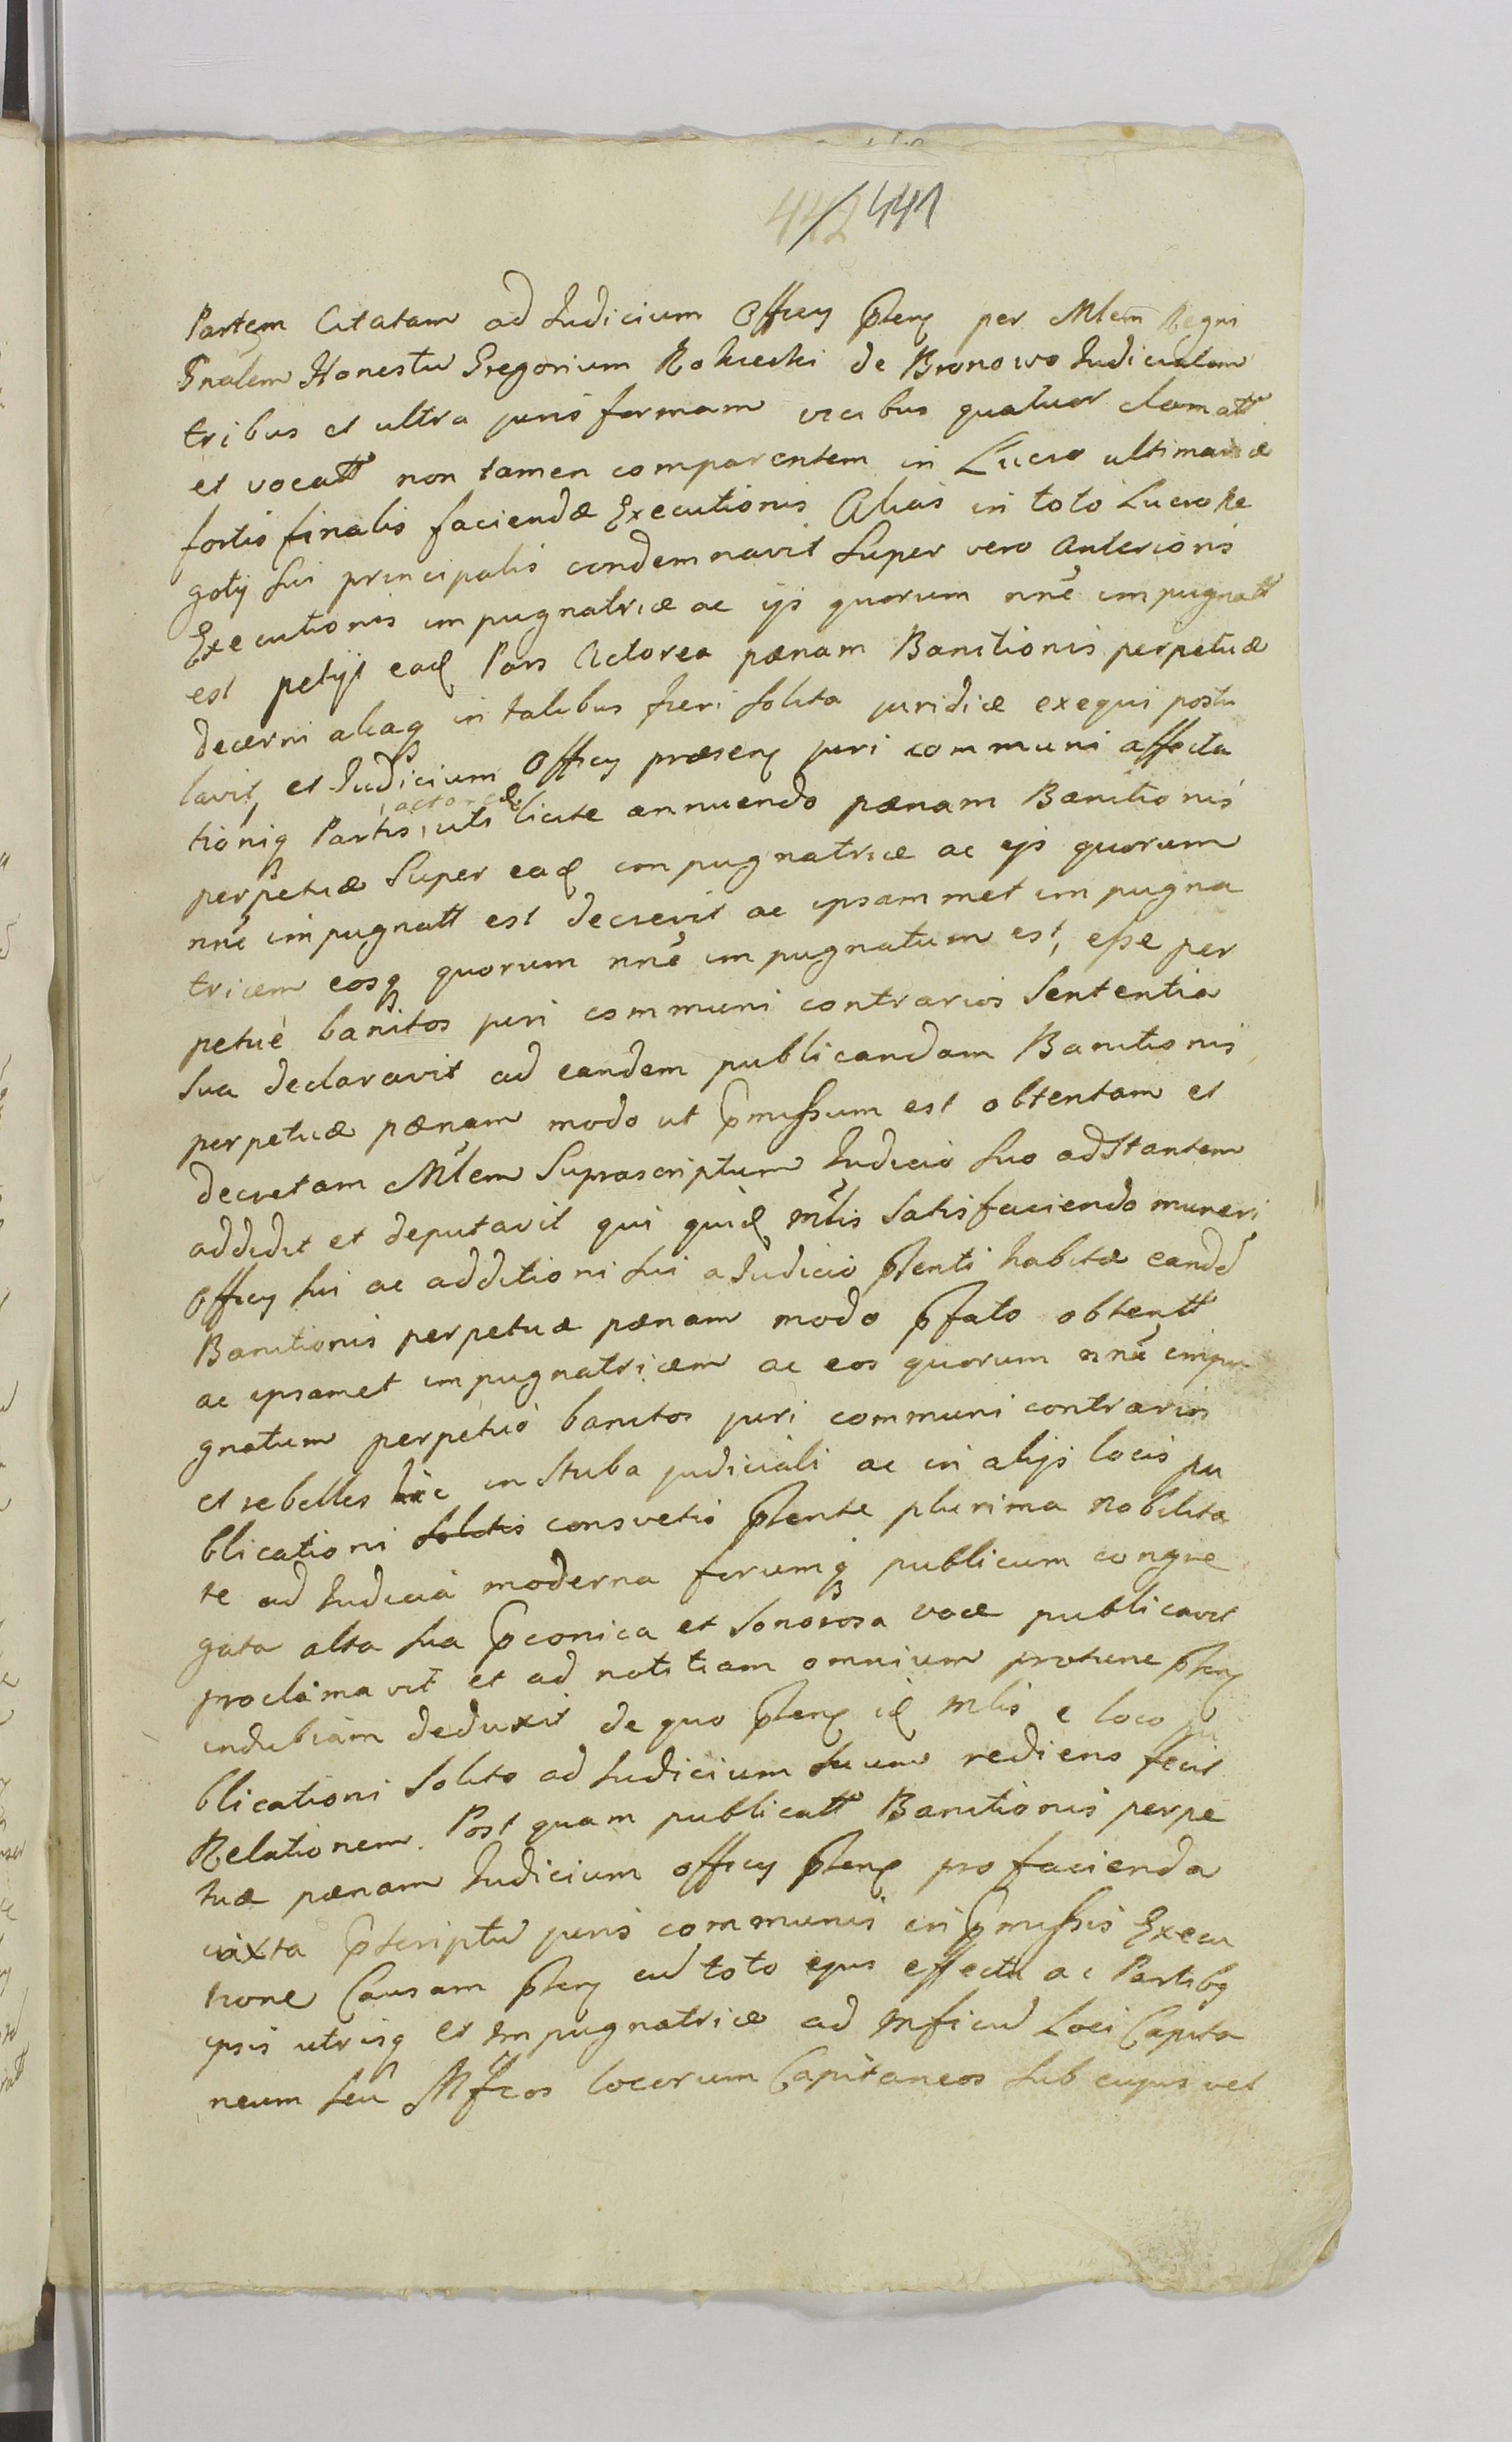 442/441
Partem Citatam ad Judicium Officy pñtens per Mlem Regni
Gñalem Honestũ Gregorium de Bronowo Judicialem
tribus et ultra juris formam vicibus quatuor clamatt
et vocatt non tamen comparentem in Lucro ultimariæ
fortis finalis faciendæ Executionis Alias in toto Lucro Ne
gotij sui principalis condemnavit Super vero Anterioris
Executionis impugnatrice ac ijs quorum nñe impugnatt
est petijt eadq Pars Actorea pænam Banitionis perpetuæ
decerni aliaq in talibus fieri solita juridice exequi postu
lavit, et Judicium Officy præsens juri communi affecta
tioniq Partis actoreæ uti licite annuendo pænam Banitionis
perpetuæ Super eadq impugnatrice ac ijs quorum
nñe impugnatt est decrevit ac ipsammet impugna
tricem eosq quorum nñe impugnatum est, esse per
petuè banitos juri communi contrarios Sententia
sua declaravit ad eandem publicandam Banitionis
perpetuæ pænam modo ut pmissum est obtentam et
decretam Mlem Suprascriptum Judicio suo adstantem
addidit et deputavit qui quidq Mlis Satisfaciendo muneri
Officy sui ac additioni sui a Judicio pñti habitæ eandẽ
Banitionis perpetuæ pænam modo pfato obtentt
ac ipsamet impugnatricem ac eos quorum nñe impu
gnatum perpetuo banitos juri communi contrarios
et rebelles hic in Stuba judiciali ac in alijs locis pu
blicationi solitis consvetis pñte plurima nobilita
te ad Judicia moderna forumq publicum congre
gata alta sua pconica et sonorosa voce publicavit
proclamavit et ad notitiam omnium protunc pñtens
indubiam deduxit de quo pñtens idq Mlis e loco pu
blicationi solito ad Judicium suum rediens fecit
Relationem. Post quam publicatt Banitionis perpe
tuæ pænam Judicium officy pñtens pro facienda
iuxta pscriptũ juris communis in pmissis Execu
tione Causam pñtens cũ toto ejus effectu ac Partibq
ipsis utrisq et impugnatrice ad Mficũ Loci Capita
neum seu Mficos locorum Capitaneos sub cujus vel